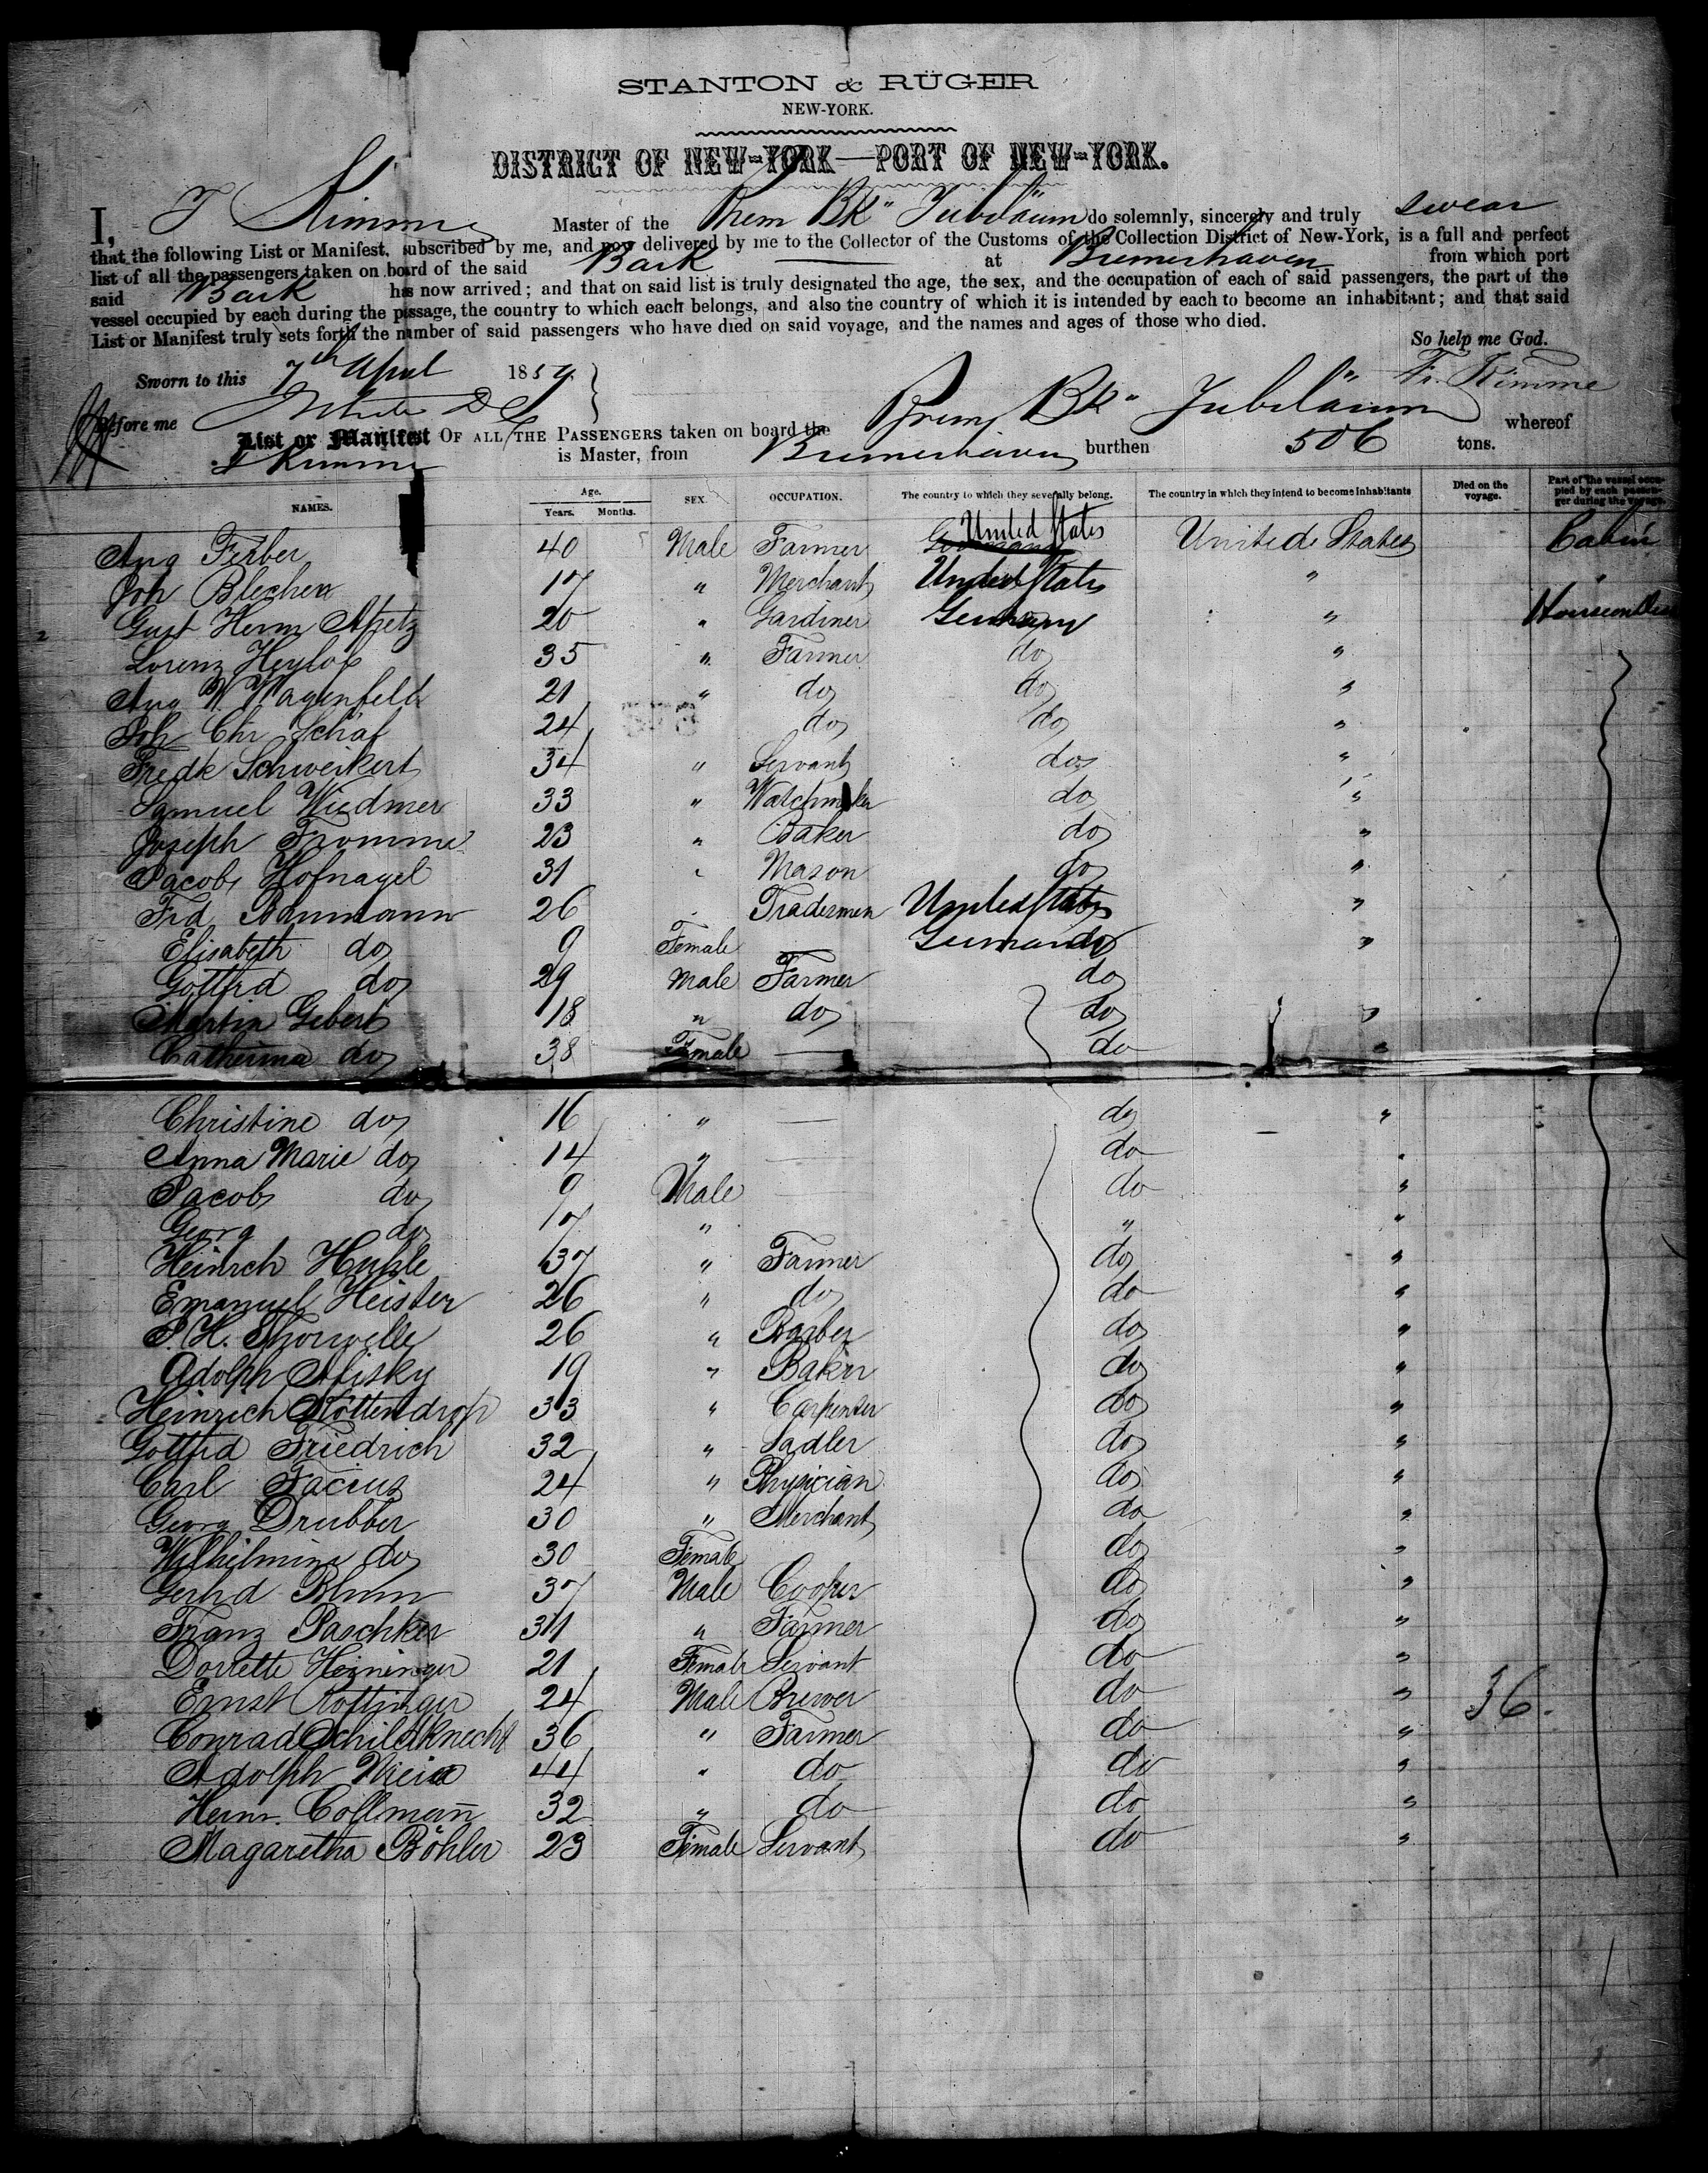 STANTON & RÜGER
NEW-YORK.
DISTRICT OF NEW-YORK—PORT OF NEW-YORK.
I, F Kimme Master of the Brem Bk" Jubiläum do solemnly, sincerely and truly swear
that the following List or Manifest, subscribed by me, and now delivered by me to the Collector of the Customs of the Collection District of New-York, is a full and perfect
list of all the passengers taken on board of the said Bark at Bremerhaven from which port
said Bark has now arrived; and that on said list is truly designated the age, the sex, and the occupation of each of said passengers, the part of the
vessel occupied by each during the passage, the country to which each belongs, and also the country of which it is intended by each to become an inhabitant; and that said
List or Manifest truly sets forth the number of said passengers who have died on said voyage, and the names and ages of those who died.
So help me God.
Sworn to this 7th April 1859 Fr. Kimme
Before me
List or Manifest OF ALL THE PASSENGERS taken on board the Brem Bk" Jubiläum whereof
F Kimme is Master, from Bremerhaven burthen 506 tons.
NAMES. Age. Years. Months. SEX. OCCUPATION. The country to which they severally belong. The country in which they intend to become inhabitants Died on the voyage. Part of the vessel occupied by each passenger during the voyage.
Aug Ferber 40 Male Farmer Germany United States United States Cabin
Joh Blecher 17 " Merchant United States "
Gust Herm Apetz 20 " Gardiner Germany "
Lorenz Heylof 35 " Farmer do "
Aug W Wagenfeld 21 " do do "
Joh Chr Schäf 24 " do do "
Fredk Schweikert 34 " Servant do "
Samuel Wiedmer 33 " Watchmaker do "
Joseph Fromme 23 " Baker do "
Jacob Hofnagel 31 " Mason do "
Frd Baumann 26 " Tradesmen United States "
Elisabeth do 9 Female — Germany do "
Gottfrd do 29 Male Farmer do
Martin Gebert 18 " do do "
Catherina do 38 Female — do "
Christine do 16 " — do "
Anna Marie do 14 " — do "
Jacob do 9 Male — do "
Georg do 17 " " "
Heinrch Huhle 37 " Farmer do "
Emanuel Heister 26 " do do "
P. H. Thorwelle 26 " Barber do "
Adolph Alisky 19 " Baker do "
Heinrich Köttendrop 33 " Carpenter do "
Gottfrd Friedrich 32 " Sadler do "
Carl Facius 24 " Physician do "
Georg Drubber 30 " Merchant do "
Wilhelmine do 30 Female do "
Gerhd Blum 37 Male Cooper do "
Franz Paschker 31 " Farmer do "
Dorrette Heininger 21 Female Servant do "
Ernst Rottinger 24 Male Brewer do " 36.
Conrad Schildknecht 36 " Farmer do "
Adolph 44 " do do "
Herm. Collmann 32 " do do "
Magaretha Böhler 23 Female Servant do "